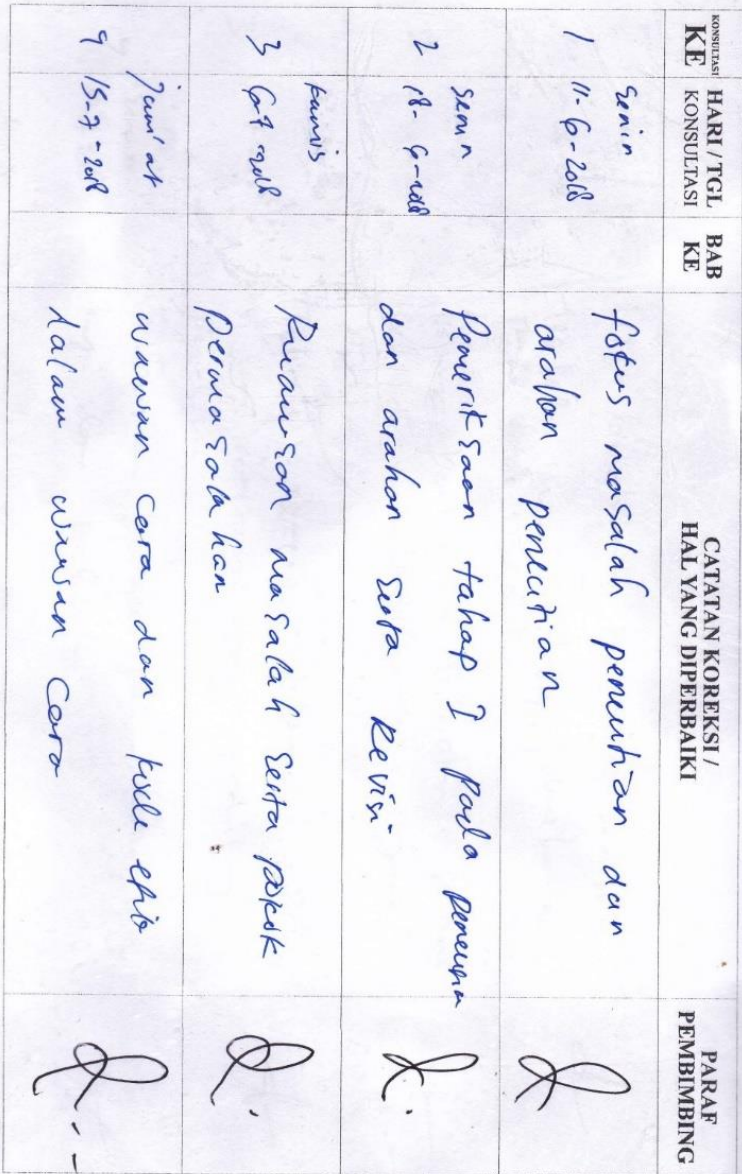 KONSULTASI KE
HARI / TGL KONSULTASI
BAB KE
CATATAN KOREKSI / HAL YANG DIPERBAIKI
PARAF PEMBIMBING
1
Senin
11-6-2018
fokus masalah penelitian dan
arahan penelitian
2
Senin
18-6-2018
Pemeriksaan tahap I pada
dan arahan serta Revisi
3
Kamis
Rumusan masalah serta pokok
permasalahan
Jum'at
15-7-2018
wawan cara dan kode etik
dalam wawan cara